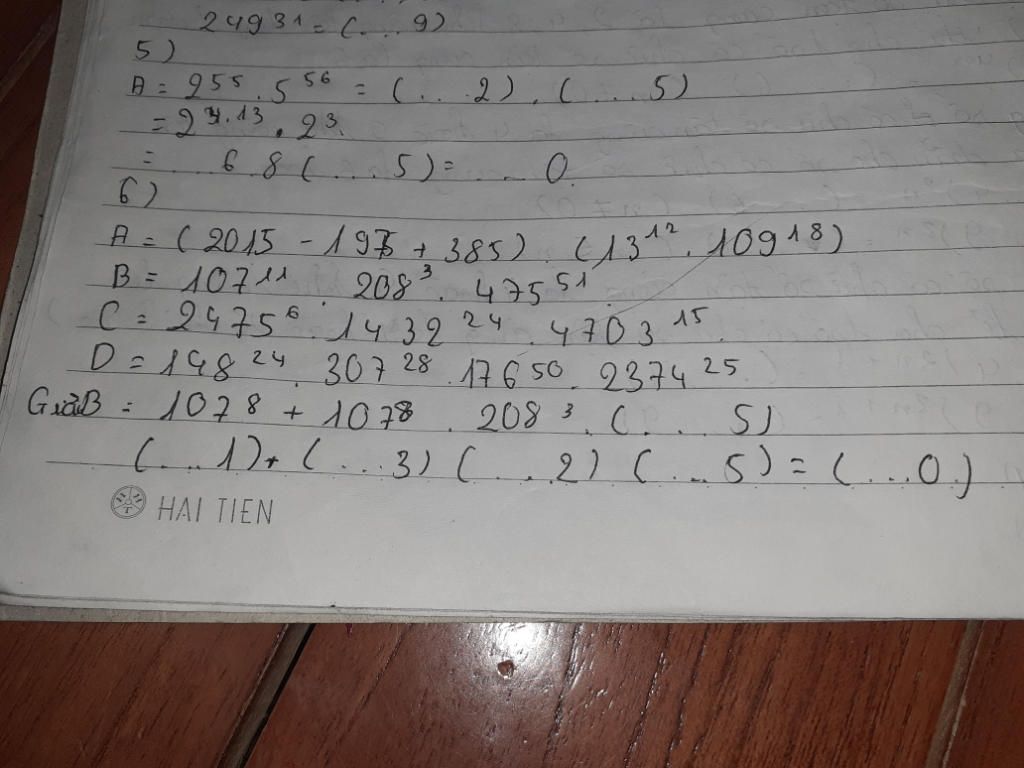 2493¹ = (...9)
5)
A = 2⁵⁵ . 5⁵⁶ = (...2) . (...5)
= 2⁴·¹³ . 2³
= ...6 8 (...5) = ...0.
6)
A = (2015 - 1975 + 385) . (13¹² . 109¹⁸)
B = 107¹¹ . 208³ . 475⁵¹
C = 2475⁶ . 1432²⁴ . 4703¹⁵
D = 148²⁴ . 307²⁸ . 176⁵⁰ . 2374²⁵
Giải B = 107⁸ + 107³ . 208³ . (...5)
(...1) + (...3) (...2) (...5) = (...0)
HAI TIEN